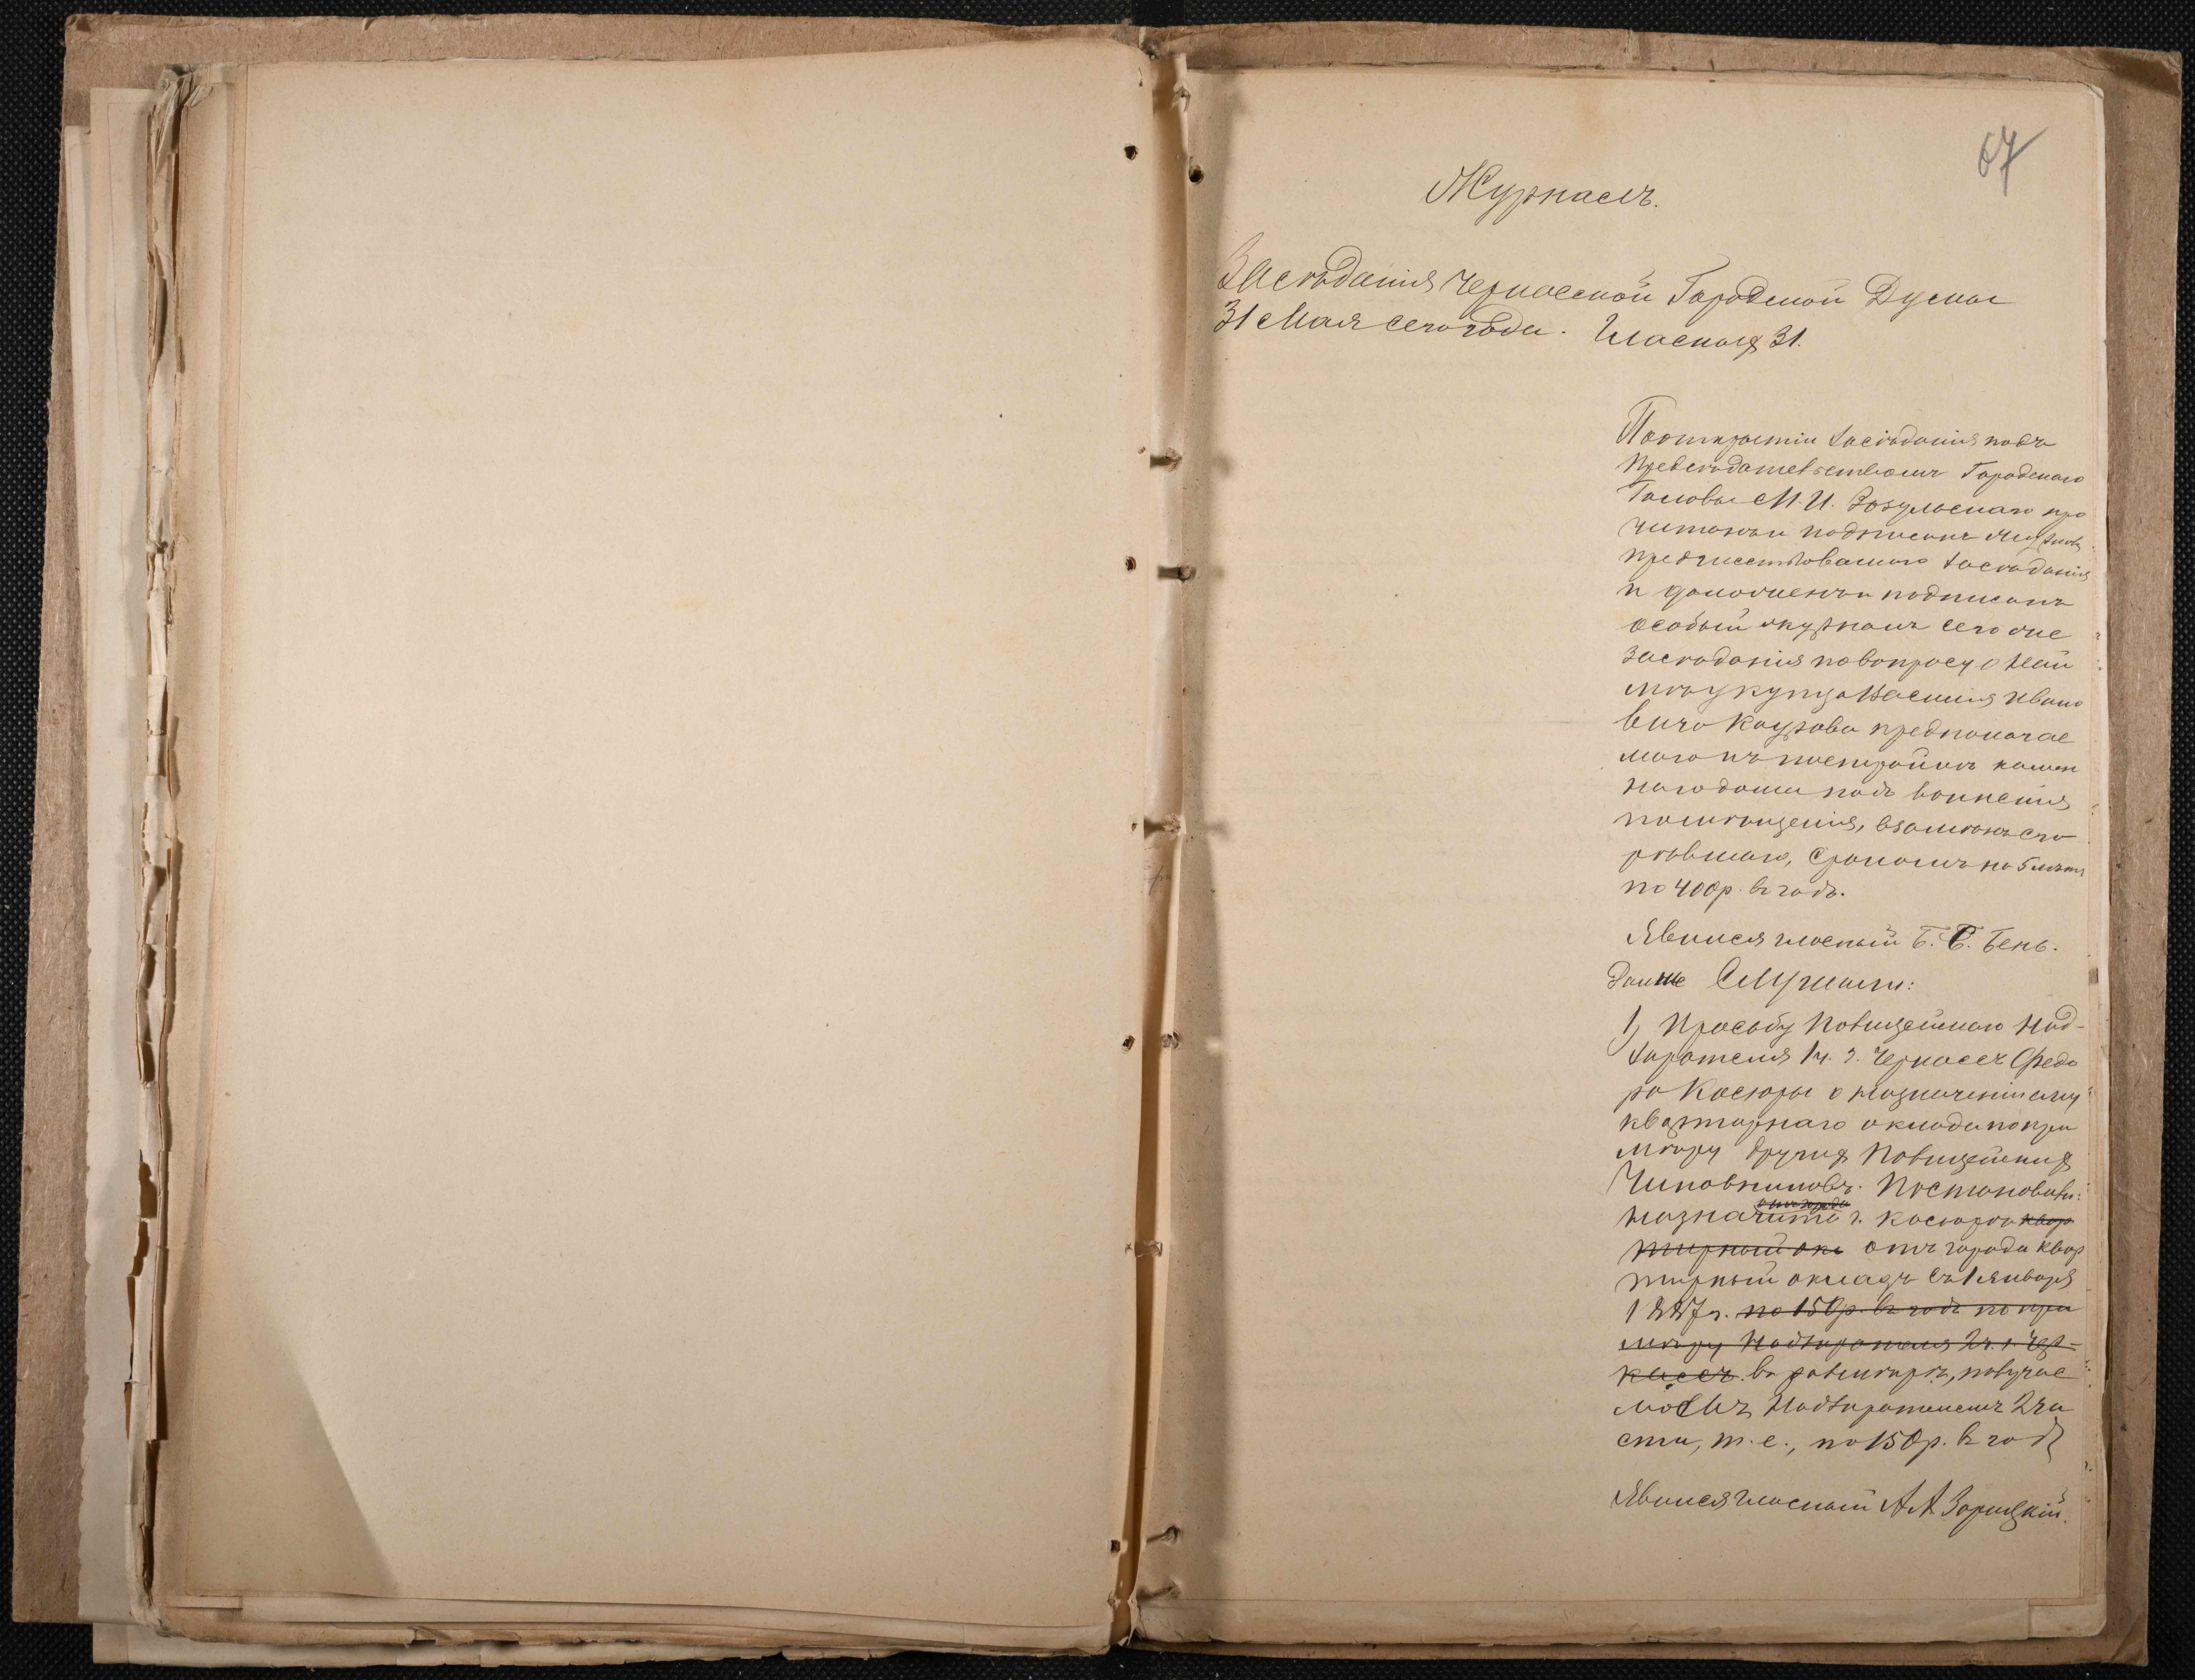 67
Журналъ.
Засѣданія Черкасской Городской Думы
31 Мая сего года. Гласныхъ 31.
По открытіи засѣданія подъ
предсѣдательствомъ Городскаго
Головы М. И. Зозульскаго про
читанъ и подписанъ журналъ
предшествовавшаго засѣданія
и доложенъ и подписанъ
особый журналъ сего же
засѣданія по вопросу о най
мѣ у купца Василія Ивано
вича предполагае
маго къ постройкѣ камен
наго дома подъ воинскія
помѣщенія, взамѣнъ сго
рѣвшаго, срокомъ на 5 лѣтъ
по 400 р. въ годъ.
Явился гласный Б. Б. Бень.
Далѣе Слушали:
1) Просьбу Полицейскаго Над-
зирателя 1 ч. г. Черкассъ Федо
ра Косюры о назначеніи ему
квартирнаго оклада по при
мѣру другихъ Полицейскихъ
Чиновниковъ. Постановили:
отъ города
назначить г. Косюрѣ квар
тирный окл отъ города квар
тирный окладъ съ 1 Января
1887 г. по 150 р. въ годъ по при
мѣру Надзирателя 2 ч. г. Чер-
кассъ. въ размѣрѣ, получае
момъ Надзирателемъ 2 ча
сти, т. е., по 150 р. въ годъ
Явился гласный А А Зарицкій.